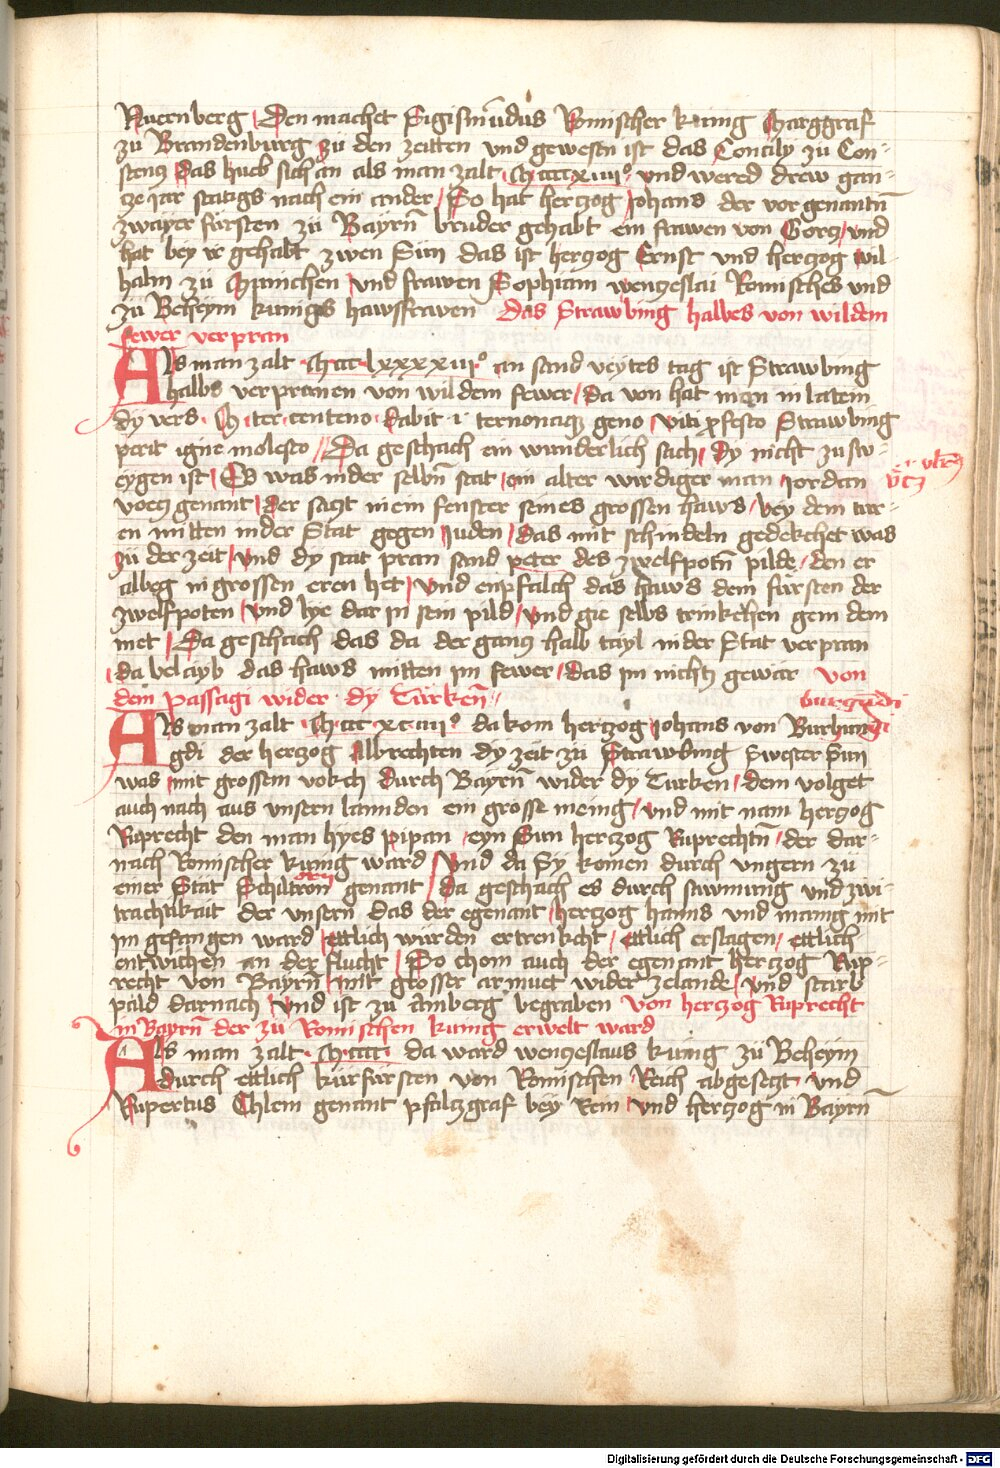 Nuernberg Den machet Sigismūdus Romischer kunig Marggraf
zu Brandenburg zu den zeitten vnd gewesen ist das Concily zu Con-
stencz das hueb sich an als man zalt M cccc xiiij° vnd wered drew gan-
cze jar statigs nach ein ander So hat herczog Johans der vorgenantn̄
zwayer fürsten zu Bayrn̄ bruder gehabt ein frawen von Gorcz vnd
hat bey ir gehabt zwen Sün das ist herczog Ernst vnd herczog wil-
halm zu Munichen vnd frawen Sophiam wenczeslai Romisches vnd
zu Beheym kunigs hawsfrawen Das Strawbing halbs von wildem
fewer verpran
Als man zalt M ccc lxxxxiij° an sand veytes tag ist Strawbing
halbs verprannen von wildem fewer da von hat man in latein
dy vers M ter centeno rabit i ternonaq3 geno viti ꝓfesto Strawbing
perit igne molesto Da geschach ein wunderlich sach dy nicht zu sw-
eygen ist Es was in der selbn̄ stat ein alter wirdiger man Jordan
voecz genant der sazt in ein fenster seines grossen haws bey dem tur-
en mitten in der Stat gegen Juden das mit schindeln gedekchet was
zu der zeit vnd dy stat pran sand peter des zwelfpotn̄ pilde den er
albeg in grossen eren het vnd enpfalch das haws dem fürsten der
zwelfpoten vnd lye dar in sein pild vnd gie selbs trinkchen gein dem
met Da geschach das da der gancz halb tayl in der Stat verpran
da belayb das haws mitten im fewer das im nichcz gewar von
dem passagi wider dy Türken̄ burgūdi
Als man zalt M ccc xc iiij° da kom herczog Johans von Burgun
gdi der herczog Albrechten dy zeit zu Strawbing Swester Sun
was mit grossem volkch durch Bayrn̄ wider dy Turken dem volget
auch nach aus vnsern lannden ein grosse meing vnd mit nam herczog
Ruprecht den man hyes pipan eyn Sun herczog Ruprechtn̄ der dar-
nach Romischer kunig ward Vnd da Sy komen durch vngern zu
einer Stat Schiltron genant da geschach es durch sawmung vnd zwi-
trachtikait der vnsern das der egenant herczog hanns vnd manig mit
im gefangen ward ettlich würden ertrenkcht ettlich erslagen ettlich
entwichen an der flucht So chom auch der egenant herczog Rup-
recht von Bayrn̄ mit grosser armuet wider ze lande vnd starb
pald darnach vnd ist zu Amberg begraben von herczog Ruprecht
in Bayrn̄ der zu Romischen kunig erwelt ward
Als man zalt M cccc da ward wenczeslaus kunig zu Beheym
durch ettlich kurfürsten von Romischen Reich abgeseczt vnd
Rupertus Chlem genant pfalczgraf bey Rein vnd herczog in Bayrn̄
Digitalisierung gefördert durch die Deutsche Forschungsgemeinschaft - DFG